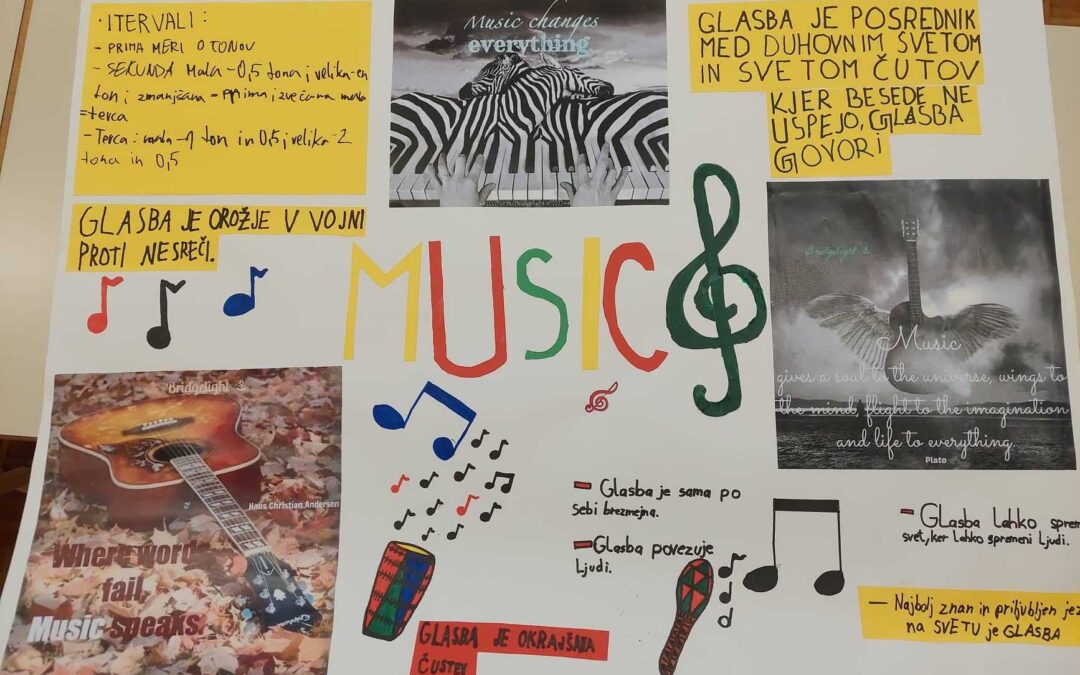 · ITERVALI:
- PRIMA MERI 0 TONOV
- SEKUNDA Mala - 0,5 tona; velika - en
ton; zmanjšana - prima; zvečana mala
= terca
- Terca: mala - 1 ton in 0,5; velika - 2
tona in 0,5
Music changes
everything
GLASBA JE POSREDNIK
MED DUHOVNIM SVETOM
IN SVETOM ČUTOV
KJER BESEDE NE
USPEJO, GLASBA
GOVORI
GLASBA JE OROŽJE V VOJNI
PROTI NESREČI.
MUSIC
Bridgelight 2
Music
gives a soul to the universe, wings to
the mind, flight to the imagination
and life to everything.
Plato
Bridgelight 3
Hans Christian Andersen
Where words
fail,
Music speaks.
Glasba je sama po
sebi brezmejna.
Glasba povezuje
ljudi.
Glasba lahko sprem
svet, ker lahko spremeni ljudi.
- Najbolj znan in priljubljen jez
na SVETU je GLASBA
GLASBA JE OKRAJŠANA
ČUSTEV